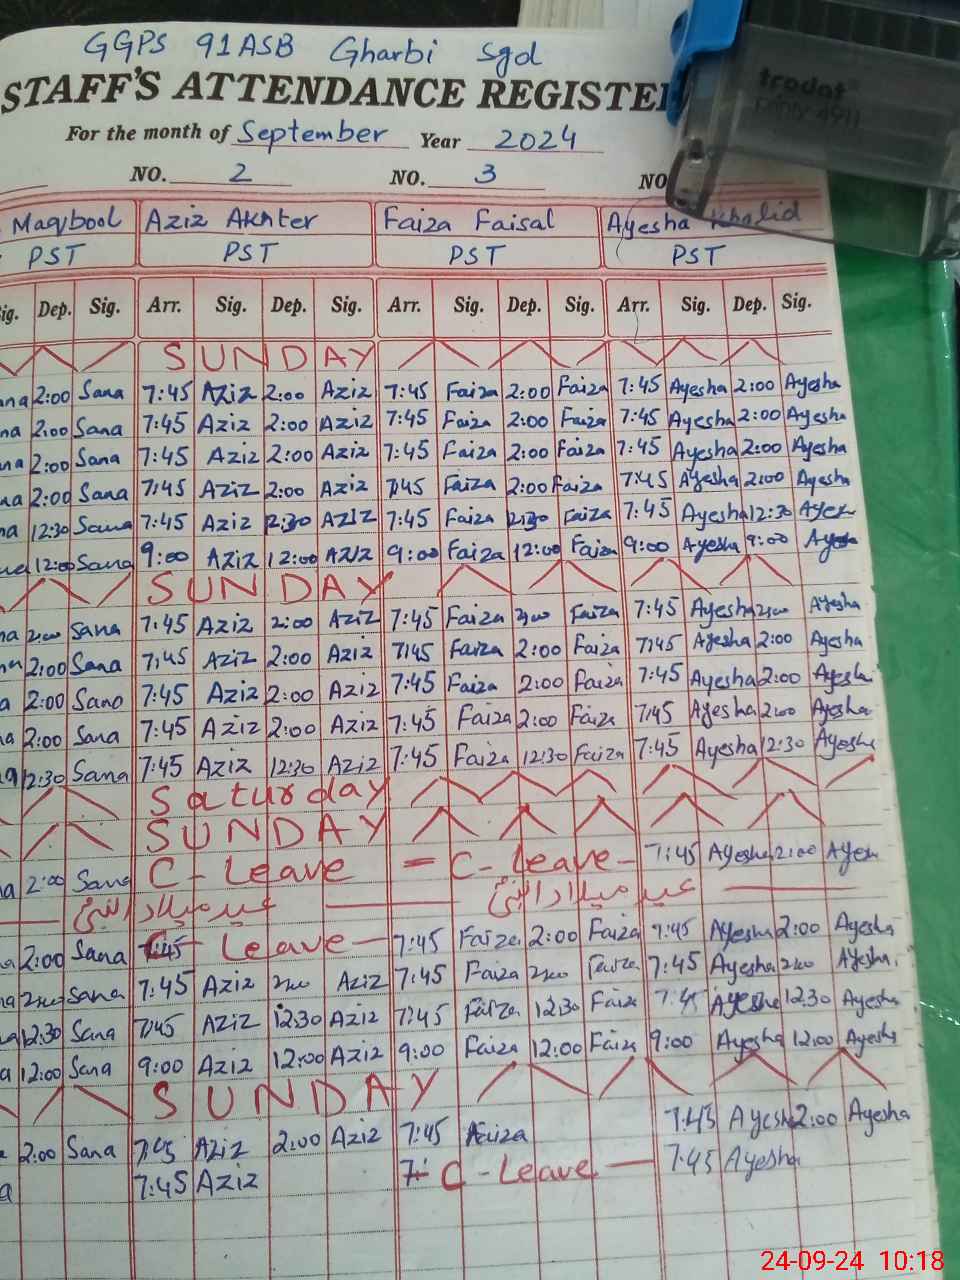 GGPS 91ASB Gharbi Sgd
STAFF'S ATTENDANCE REGISTER
For the month of September Year 2024
NO. 2 NO. 3 NO
Maqbool Aziz Akhter Faiza Faisal Ayesha Khalid
PST PST PST PST
ig. Dep. Sig. Arr. Sig. Dep. Sig. Arr. Sig. Dep. Sig. Arr. Sig. Dep. Sig.
SUNDAY
na 2:00 Sana 7:45 Aziz 2:00 Aziz 7:45 Faiza 2:00 Faiza 7:45 Ayesha 2:00 Ayesha
na 2:00 Sana 7:45 Aziz 2:00 Aziz 7:45 Faiza 2:00 Faiza 7:45 Ayesha 2:00 Ayesha
na 2:00 Sana 7:45 Aziz 2:00 Aziz 7:45 Faiza 2:00 Faiza 7:45 Ayesha 2:00 Ayesha
na 2:00 Sana 7:45 Aziz 2:00 Aziz 7:45 Faiza 2:00 Faiza 7:45 Ayesha 2:00 Ayesha
na 12:30 Sana 7:45 Aziz 12:30 Aziz 7:45 Faiza 12:30 Faiza 7:45 Ayesha 12:30 Ayesh
na 12:00 Sana 9:00 Aziz 12:00 Aziz 9:00 Faiza 12:00 Faiza 9:00 Ayesha 9:00 Ayesha
SUNDAY
na 2:00 Sana 7:45 Aziz 2:00 Aziz 7:45 Faiza 2:00 Faiza 7:45 Ayesha 2:00 Ayesha
na 2:00 Sana 7:45 Aziz 2:00 Aziz 7:45 Faiza 2:00 Faiza 7:45 Ayesha 2:00 Ayesha
a 2:00 Sana 7:45 Aziz 2:00 Aziz 7:45 Faiza 2:00 Faiza 7:45 Ayesha 2:00 Ayesha
na 2:00 Sana 7:45 Aziz 2:00 Aziz 7:45 Faiza 2:00 Faiza 7:45 Ayesha 2:00 Ayesha
a 12:30 Sana 7:45 Aziz 12:30 Aziz 7:45 Faiza 12:30 Faiza 7:45 Ayesha 12:30 Ayesha
Saturday
SUNDAY
a 2:00 Sana C-Leave = C-Leave- 7:45 Ayesha 2:00 Ayesh
عید میلاد النبیؐ عید میلاد النبیؐ
a 2:00 Sana C- Leave- 7:45 Faiza 2:00 Faiza 7:45 Ayesha 2:00 Ayesha
na 2:00 Sana 7:45 Aziz 2:00 Aziz 7:45 Faiza 2:00 Faiza 7:45 Ayesha 2:00 Ayesha
a 12:30 Sana 7:45 Aziz 12:30 Aziz 7:45 Faiza 12:30 Faiza 7:45 Ayesha 12:30 Ayesha
a 12:00 Sana 9:00 Aziz 12:00 Aziz 9:00 Faiza 12:00 Faiza 9:00 Ayesha 12:00 Ayesha
SUNDAY
2:00 Sana 7:45 Aziz 2:00 Aziz 7:45 Faiza 7:45 Ayesha 2:00 Ayesha
a 7:45 Aziz 7: C-Leave 7:45 Ayesha
trodat
printy 4911
24-09-24 10:18